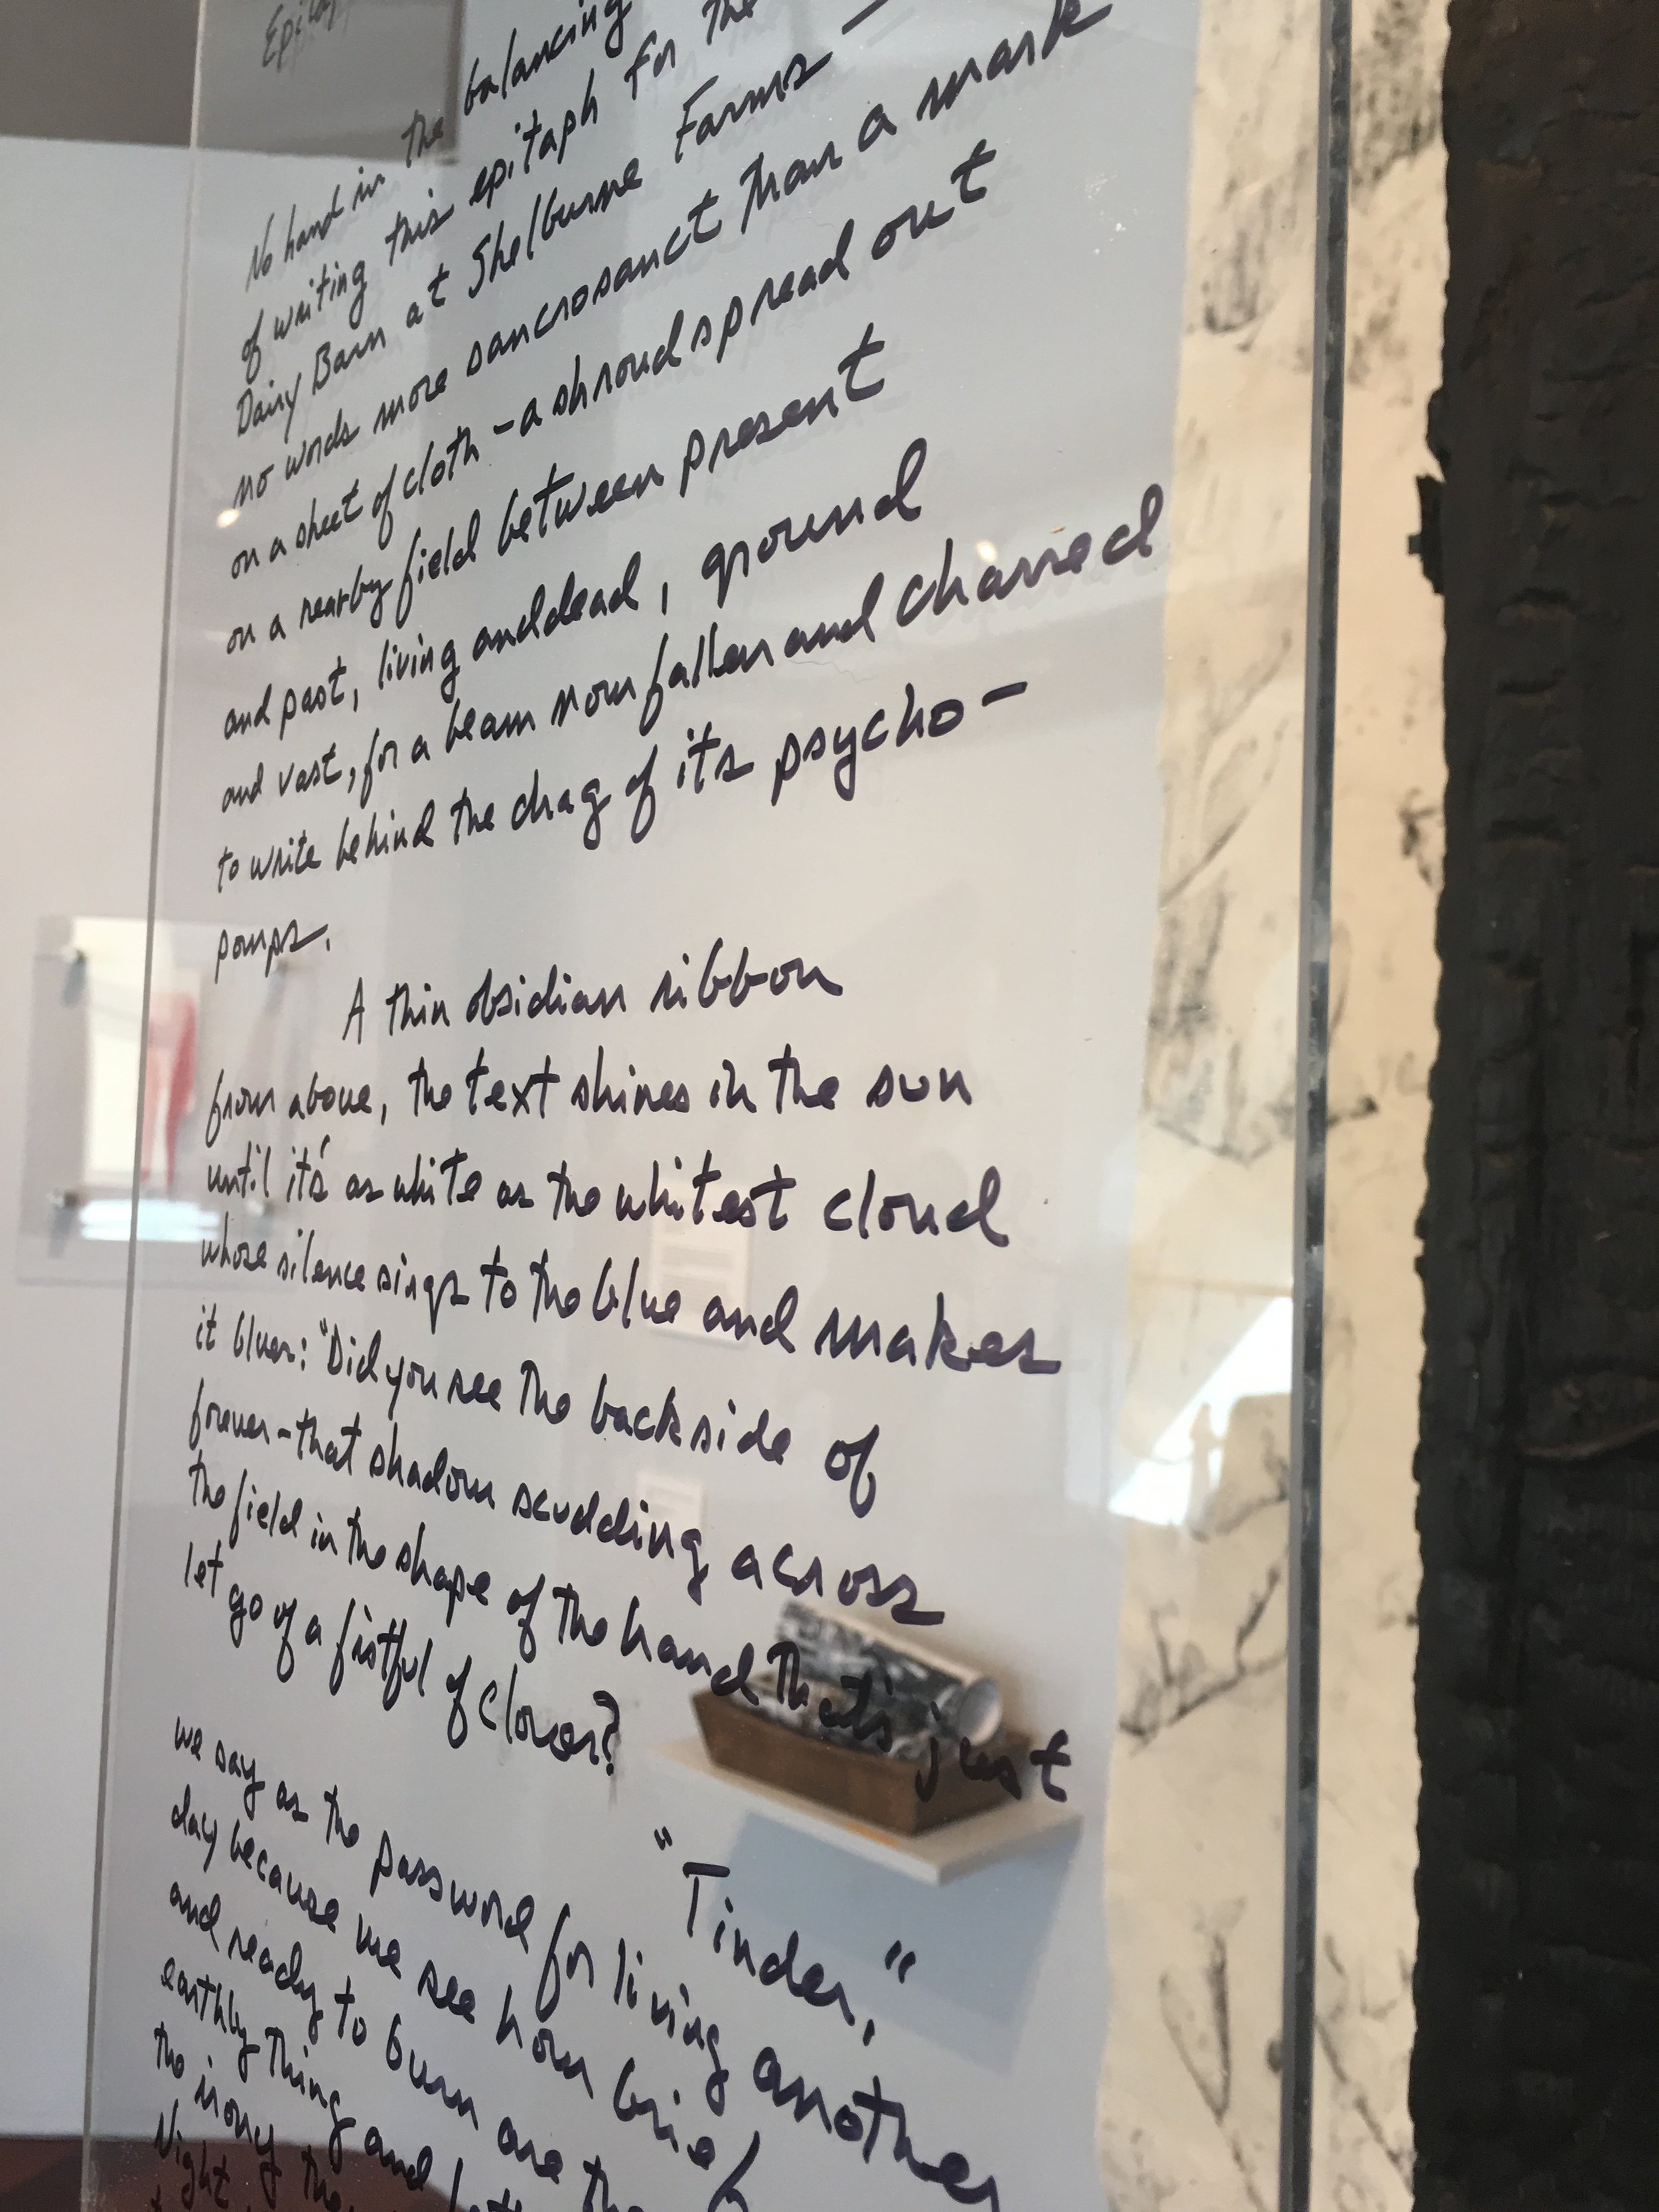 No hand in the balancing
of writing this epitaph for the
Dairy Barn at Shelburne Farms —
no words more sancrosanct than a mark
on a sheet of cloth – a shroud spread out
on a nearby field between present
and past, living and dead, ground
and vast, for a beam now fallen and charred
to write behind the drag of its psycho-
pomps.
A thin obsidian ribbon
from above, the text shines in the sun
until it's as white as the whitest cloud
whose silence sings to the blue and makes
it bluer: "Did you see the backside of
forever – that shadow scudding across
the field in the shape of the hand that's just
let go of a fistful of clover?
"Tinder,"
we say as the password for living another
day because we see how brief
and ready to burn are the
earthly thing and
the irony
Night